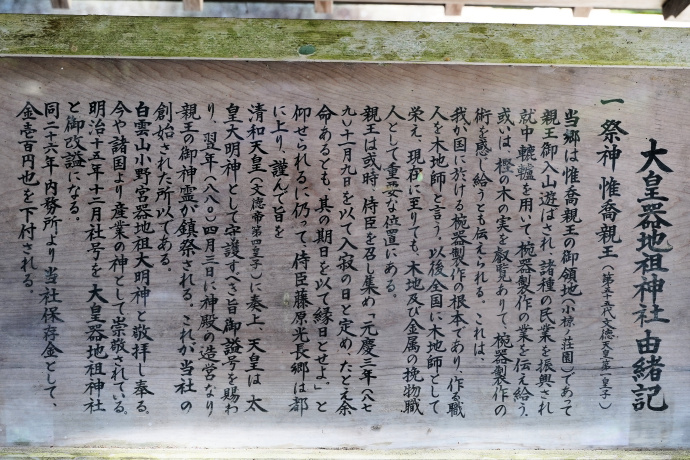 大皇器地祖神社 由緒記
一 祭神 惟喬親王（第五十五代文徳天皇第一皇子）
当郷は惟喬親王の御領地（小椋ノ荘園）であって
親王御入山遊ばされ、諸種の民業を振興され
就中轆轤を用いて、椀器製作の業を伝え給う。
或いは、樫の木の実を叡覧ありて、椀器製作の
術を感じ給うとも伝えられる。これは、
我が国に於ける椀器製作の根本であり、作る職
人を木地師と言う。以後全国に木地師として
栄え、現在に至りても、木地及び金属の挽物職
人として重要な位置にある。
親王は或時、侍臣を召し集め「元慶三年（八七
九）十一月九日を以て入寂の日と定め、たとえ余
命あるとも、其の期日を以て縁日とせよ。」と
仰せられるに仍って、侍臣藤原光長郷は都
に上り、謹んで旨を
清和天皇（文徳帝第四皇子）に奏上、天皇は 太
皇大明神として守護すべき旨御諡号を賜わ
り、翌年（八八〇）四月三日に神殿の造営なり
親王の御神霊が鎮祭される。これが当社の
創始された所以である。
白雲山小野宮器地祖大明神と敬拝し奉る。
今や諸国より産業の神として崇敬されている。
明治十五年十二月社号を 大皇器地祖神社
と御改諡になる。
同二十六年内務所より当社保存金として、
金壱百円也を下付される。